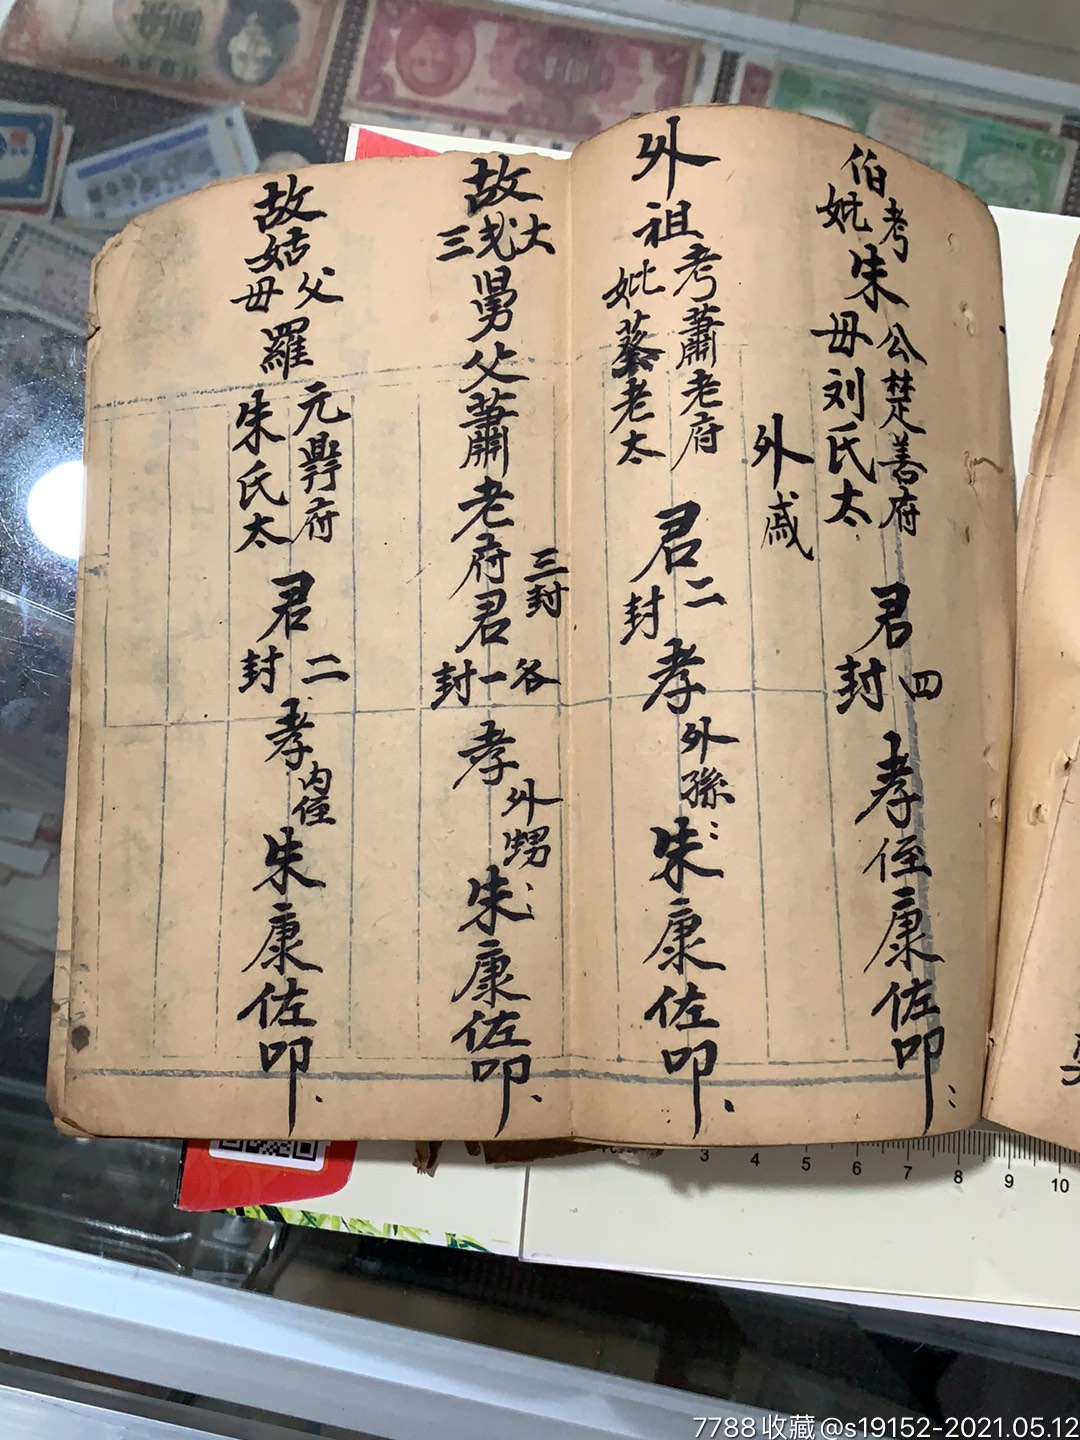 伯考妣朱公楚善府母刘氏太君四封孝侄康佐叩
外戚
外祖考妣蕭老府蔡老太君二封孝外孫朱康佐叩
故大弍三舅父蕭老府君三封各一封孝外甥朱康佐叩
故姑父母羅元鼎府朱氏太君二封孝内侄朱康佐叩
3 4 5 6 7 8 9 10
7788收藏@s19152-2021.05.12